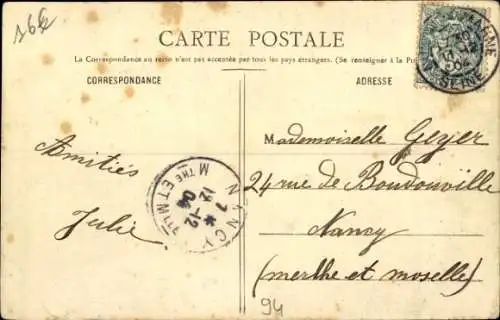 166
CARTE POSTALE
La Correspondance au recto n'est pas acceptée par tous les pays étrangers. (Se renseigner à la
CORRESPONDANCE
ADRESSE
Amitiés
Julie
Mademoiselle Geyer
24 rue de Boudonville
Nancy
(merthe et moselle)
NANCY
12-12
04
MTHE ET MLLE
MARNE
SEINE
94